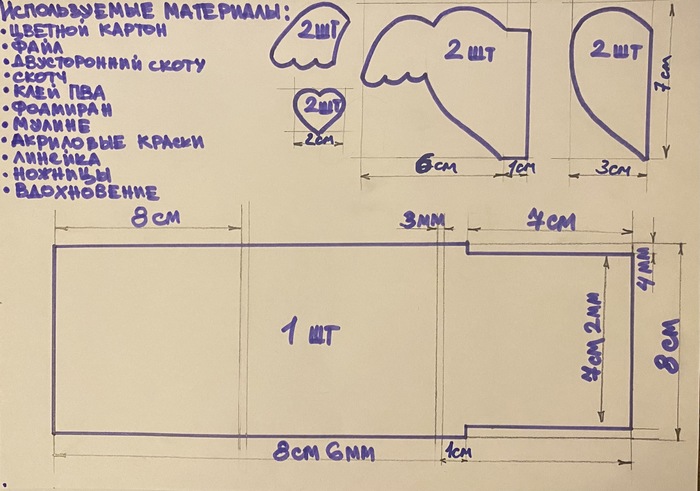 ИСПОЛЬЗУЕМЫЕ МАТЕРИАЛЫ:
• ЦВЕТНОЙ КАРТОН
• ФАЙЛ
• ДВУСТОРОННИЙ СКОТЧ
• СКОТЧ
• КЛЕЙ ПВА
• ФОАМИРАН
• МУЛИНЕ
• АКРИЛОВЫЕ КРАСКИ
• ЛИНЕЙКА
• НОЖНИЦЫ
• ВДОХНОВЕНИЕ
2 ШТ
2 ШТ
2 ШТ
2 ШТ
2 СМ
6 СМ
1 СМ
3 СМ
7 СМ
8 СМ
3 ММ
7 СМ
4 ММ
1 ШТ
7 СМ 2 ММ
8 СМ
8 СМ 6 ММ
1 СМ